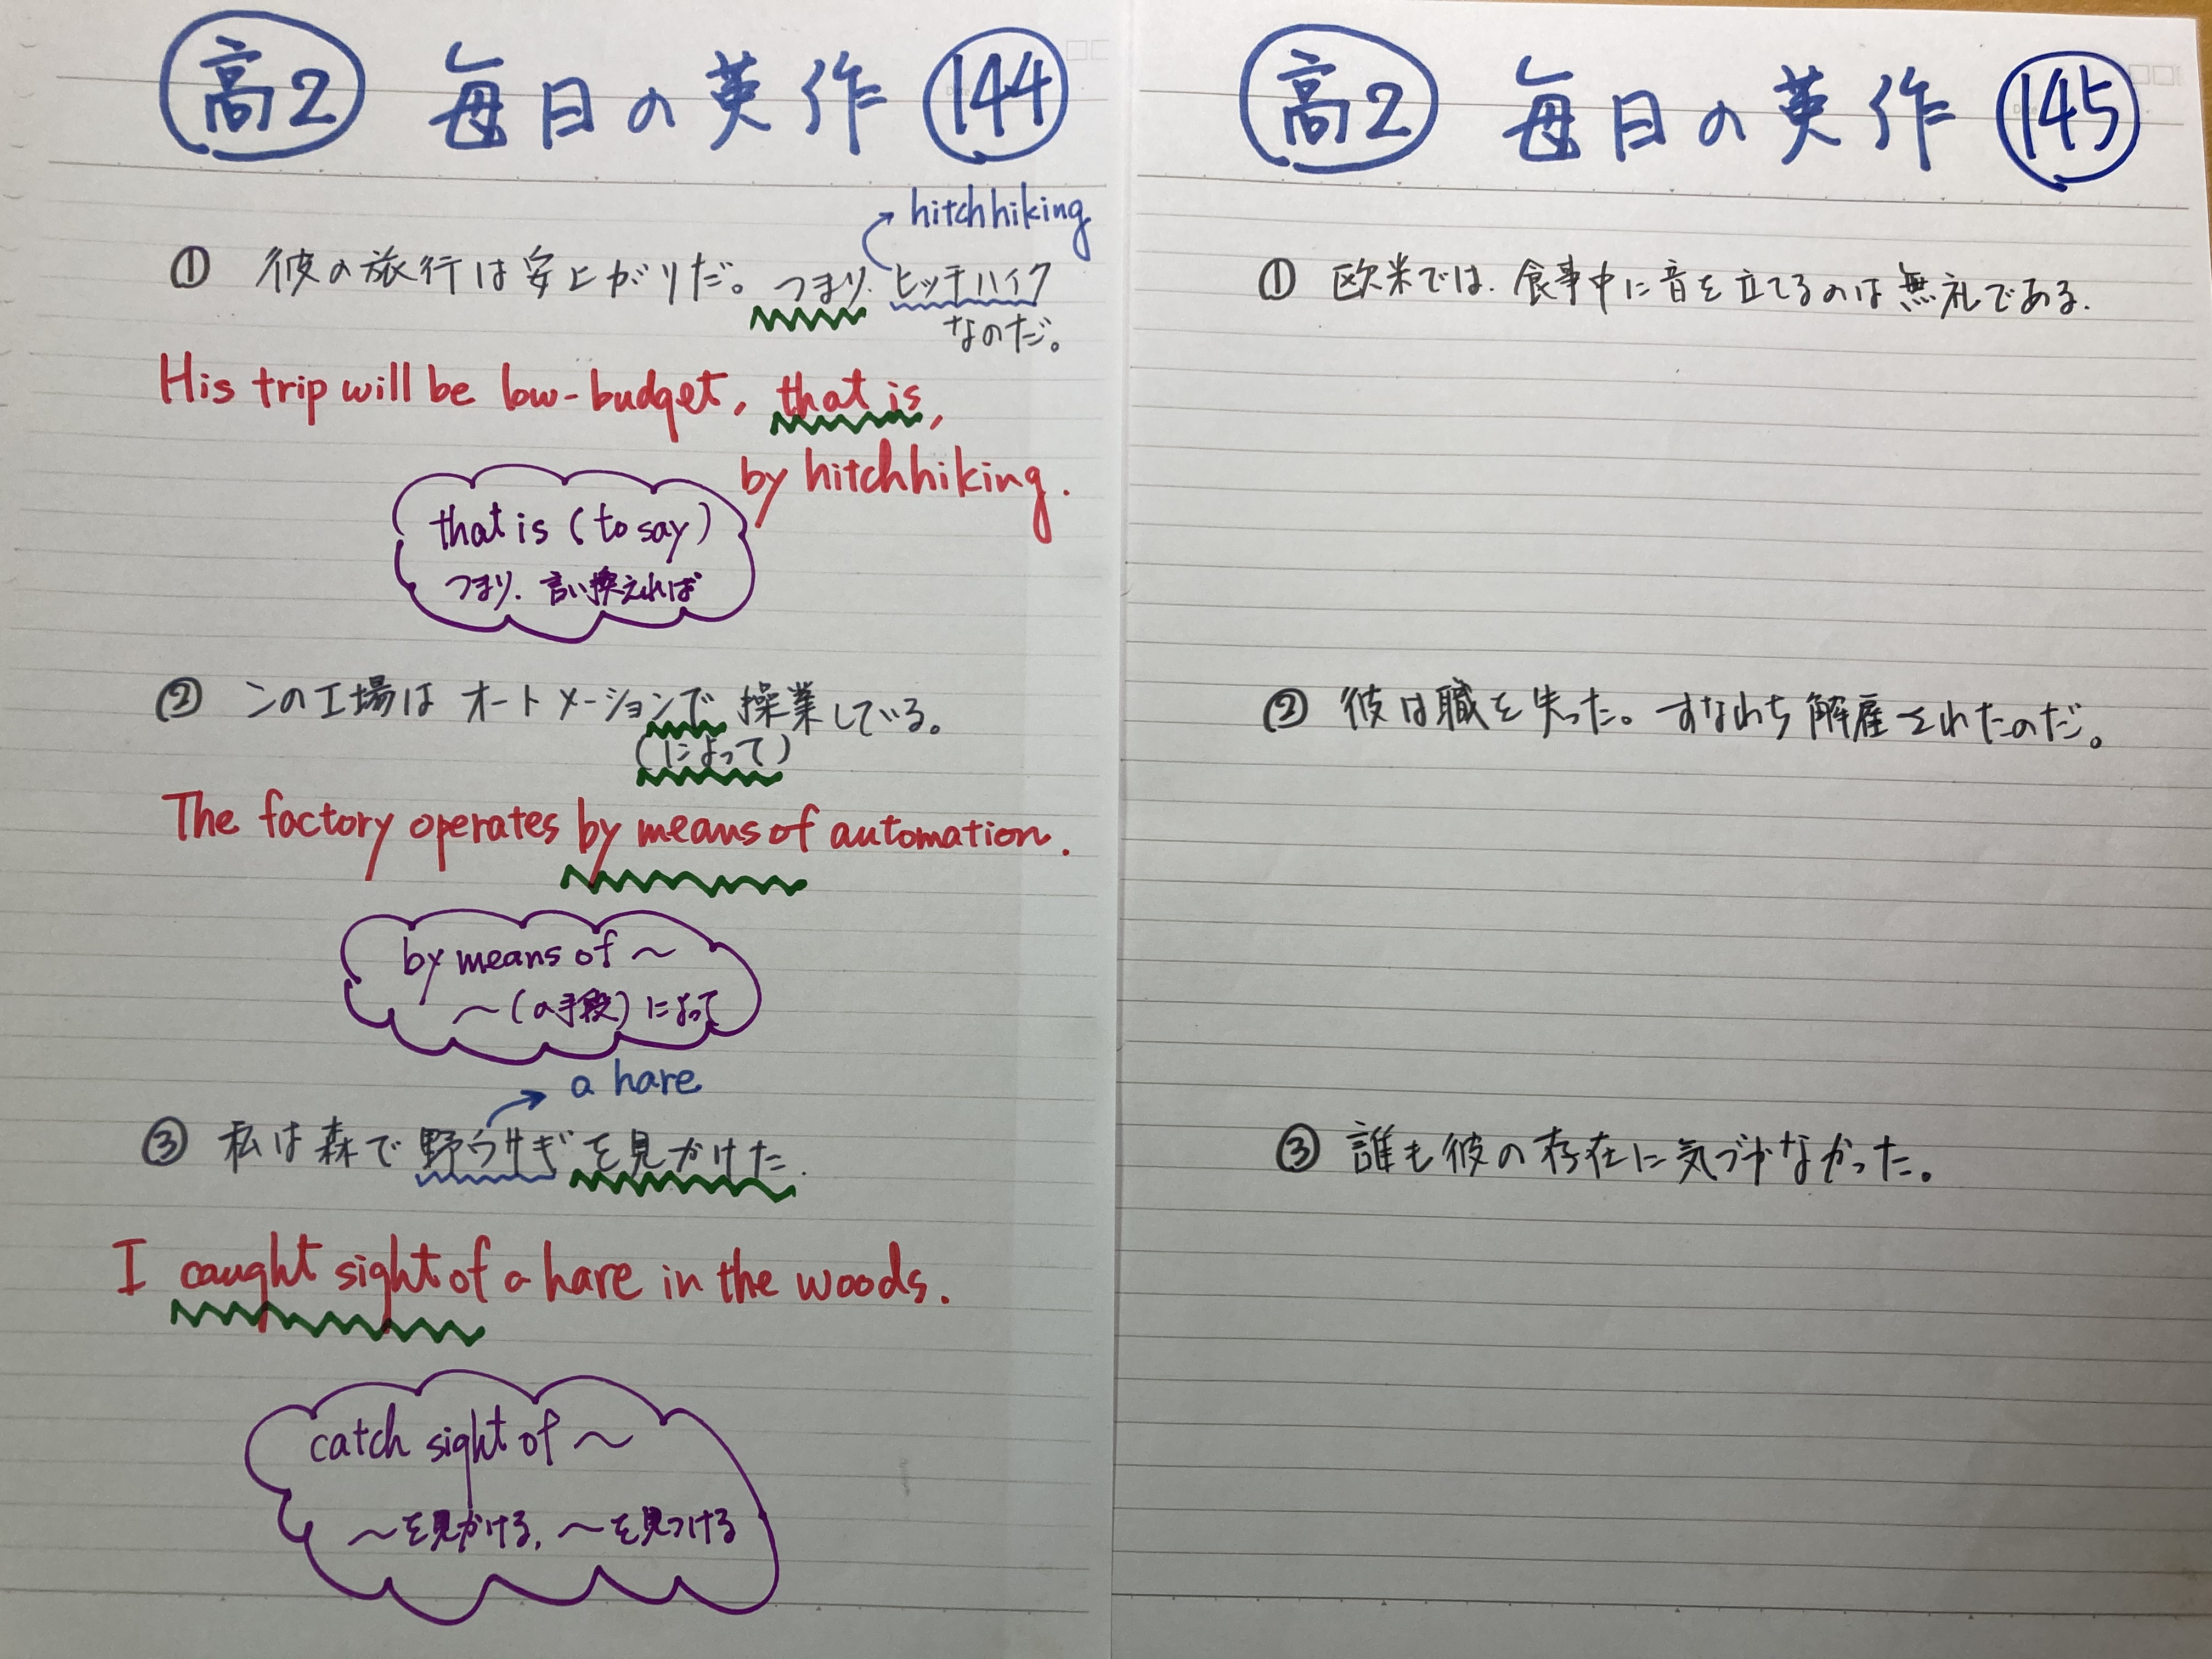 高2 毎日の英作 144
hitchhiking
① 彼の旅行は安上がりだ。つまり、ヒッチハイク
なのだ。
His trip will be low-budget, that is,
by hitchhiking.
that is (to say)
つまり、言い換えれば
② この工場はオートメーションで操業している。
(によって)
The factory operates by means of automation.
by means of ～
～(の手段)によって
a hare
③ 私は森で野ウサギを見かけた.
I caught sight of a hare in the woods.
catch sight of ～
～を見かける, ～を見つける
高2 毎日の英作 145
① 欧米では、食事中に音を立てるのは無礼である.
② 彼は職を失った。すなわち解雇されたのだ。
③ 誰も彼の存在に気づかなかった。